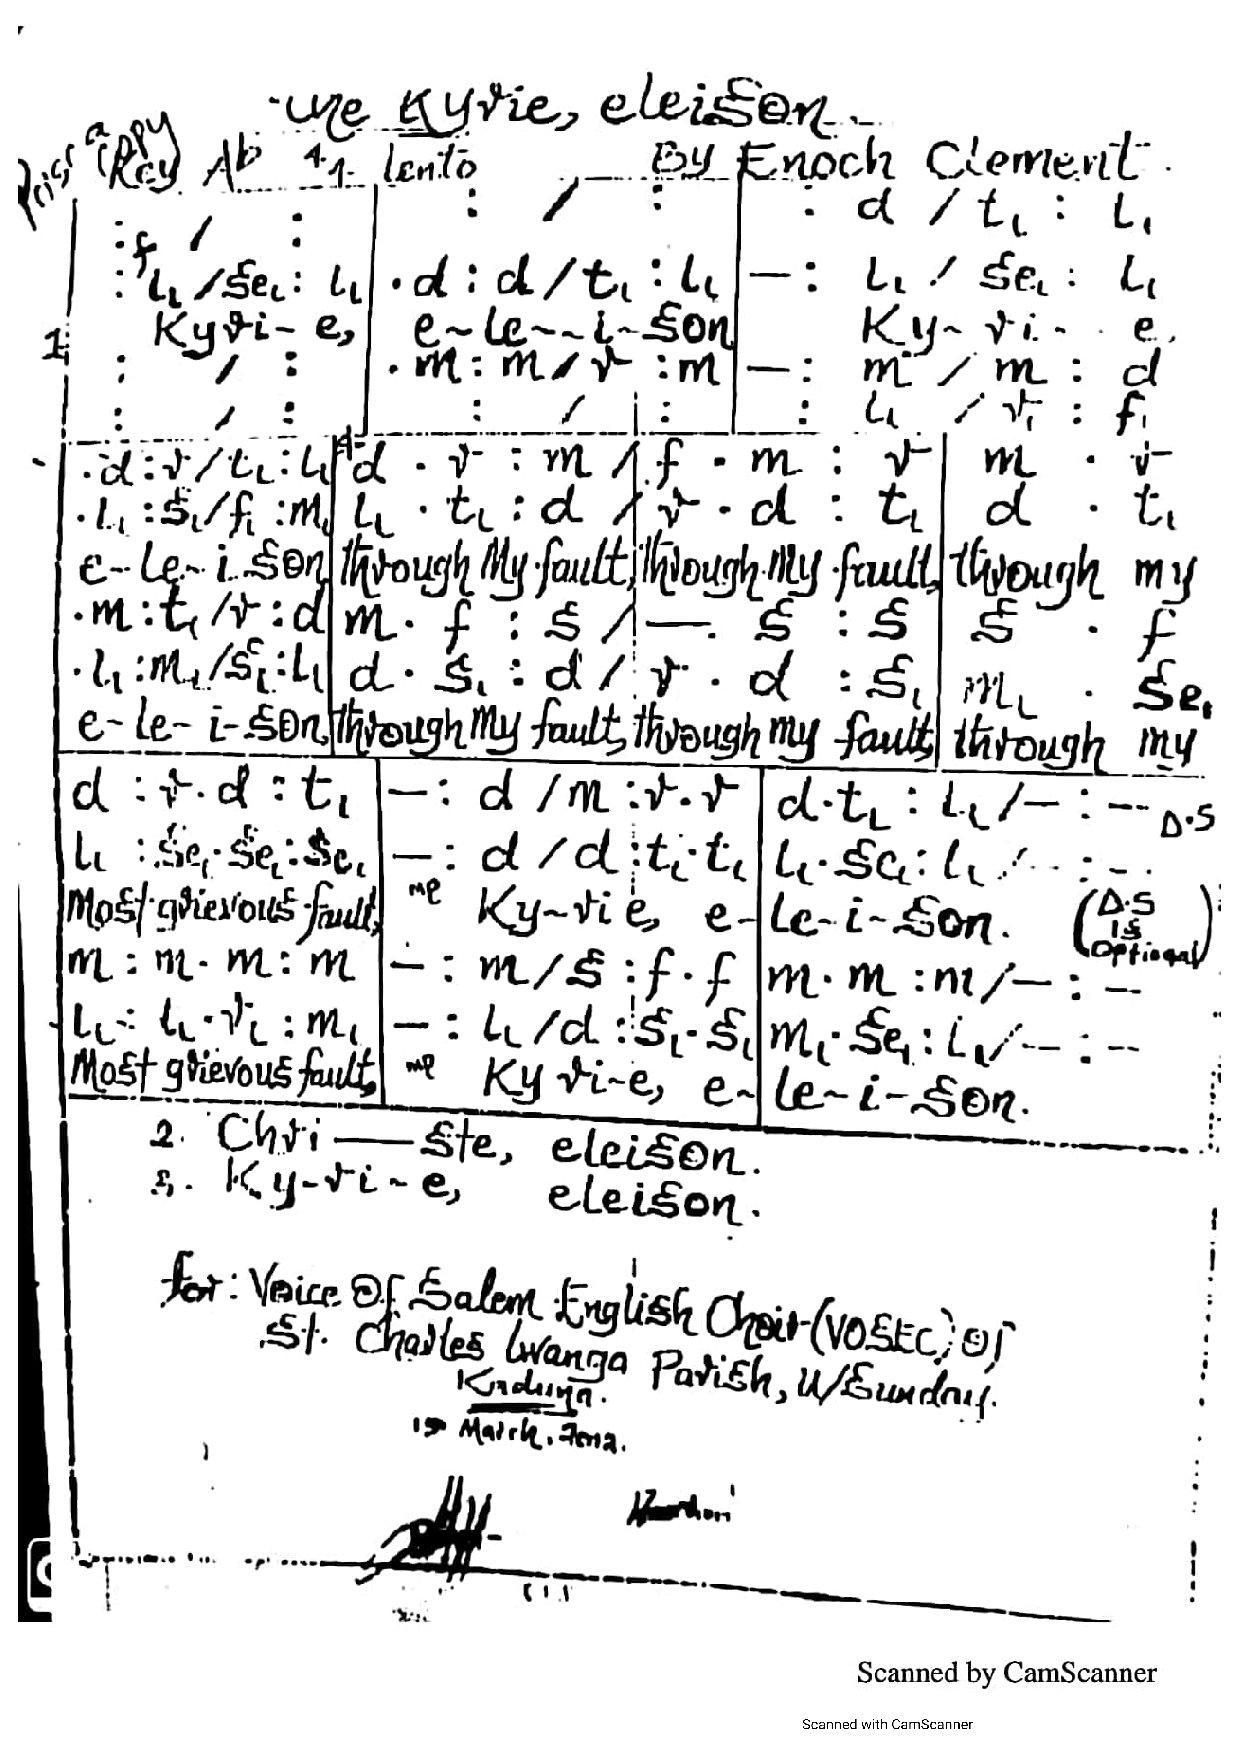 me Kyrie, eleison
Key Ab 4/4 lento By Enoch Clement
: / : : / : : d / t₁ : l₁
:f
: l₁ / se₁ : l₁ . d : d / t₁ : l₁ — : l₁ / se₁ : l₁
Kyri-e, e-le-i-son Ky-ri-e,
1
: / : . m : m / r : m — : m / m : d
: / : : / : : l₁ / r₁ : f₁
. d : r / t₁ : l₁ d . r : m / f . m : r m . r
. l₁ : s₁ / f₁ : m₁ l₁ . t₁ : d / r . d : t₁ d . t₁
e-le-i-son through My fault, through My fault, through my
. m : t₁ / r : d m . f : s / — . s : s s . f
. l₁ : m₁ / s₁ : l₁ d . s₁ : d / r . d : s₁ m₁ . se₁
e-le-i-son, through my fault, through my fault, through my
d : r . d : t₁ — : d / m : r . r d . t₁ : l₁ / — : -- D.S
l₁ : se₁ . se₁ : se₁ — : d / d : t₁ . t₁ l₁ . se₁ : l₁ / -- : --
Most grievous fault, me Ky-rie, e-le-i-son. (D.S is optional)
m : m . m : m — : m / s : f . f m . m : m / — : --
l₁ : l₁ . r₁ : m₁ — : l₁ / d : s₁ . s₁ m₁ . se₁ : l₁ / -- : --
Most grievous fault, me Ky ri-e, e-le-i-son.
2. Chri — ste, eleison.
3. Ky-ri-e, eleison.
for: Voice Of Salem English Choir (VOSEC) of
St. Charles Lwanga Parish, U/Sunday.
Kaduna.
March,
Scanned by CamScanner
Scanned with CamScanner